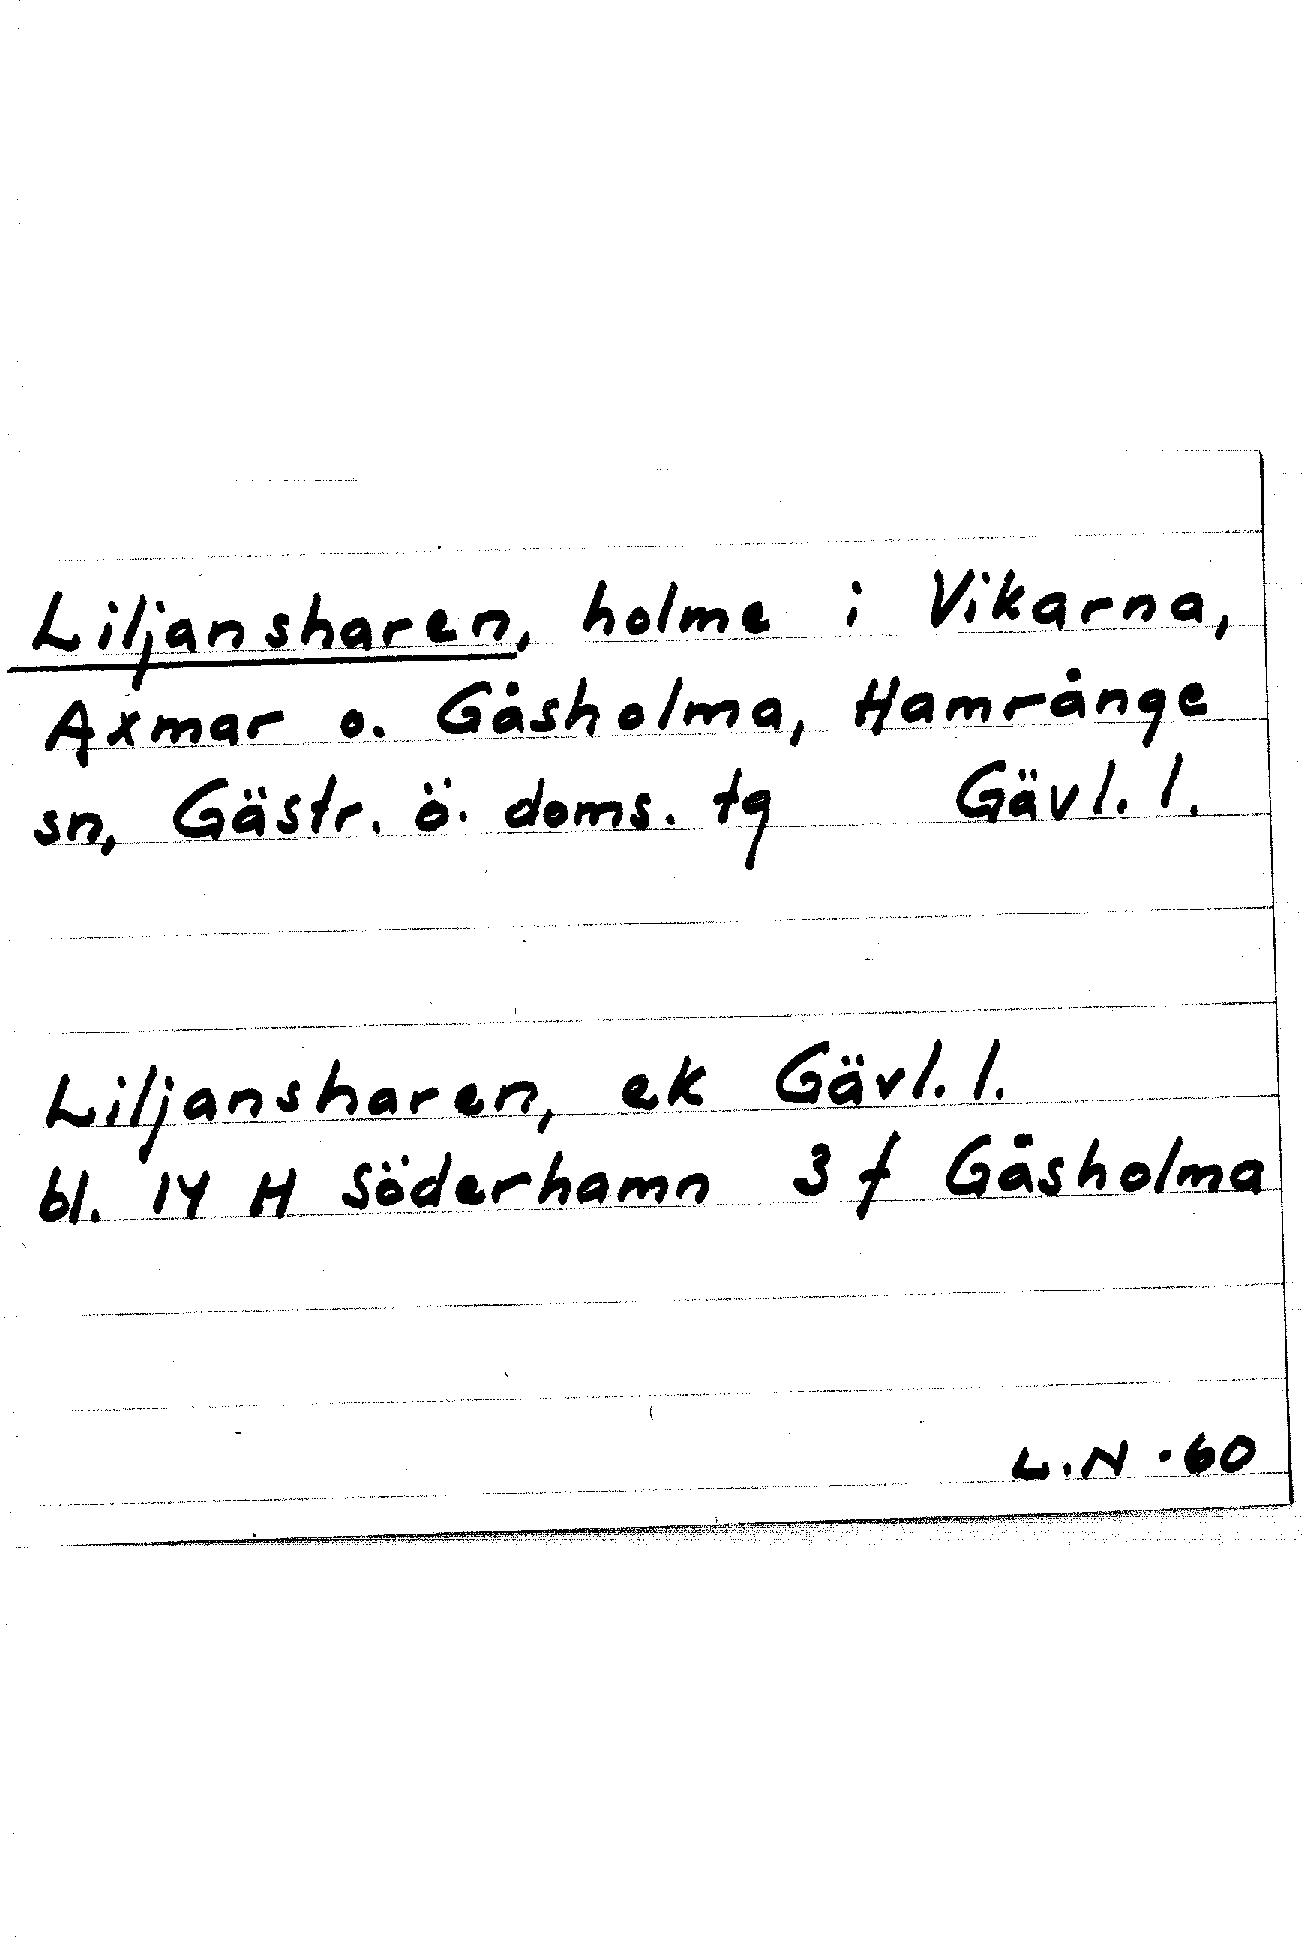 Liljansharen, holme i Vikarna,
Axmar o. Gåsholma, Hamrånge
sn, Gästr. ö. doms. tg Gävl. l.
Liljansharen, ek Gävl. l.
bl. 14 H Söderhamn 3 f Gåsholma
L.N. 60